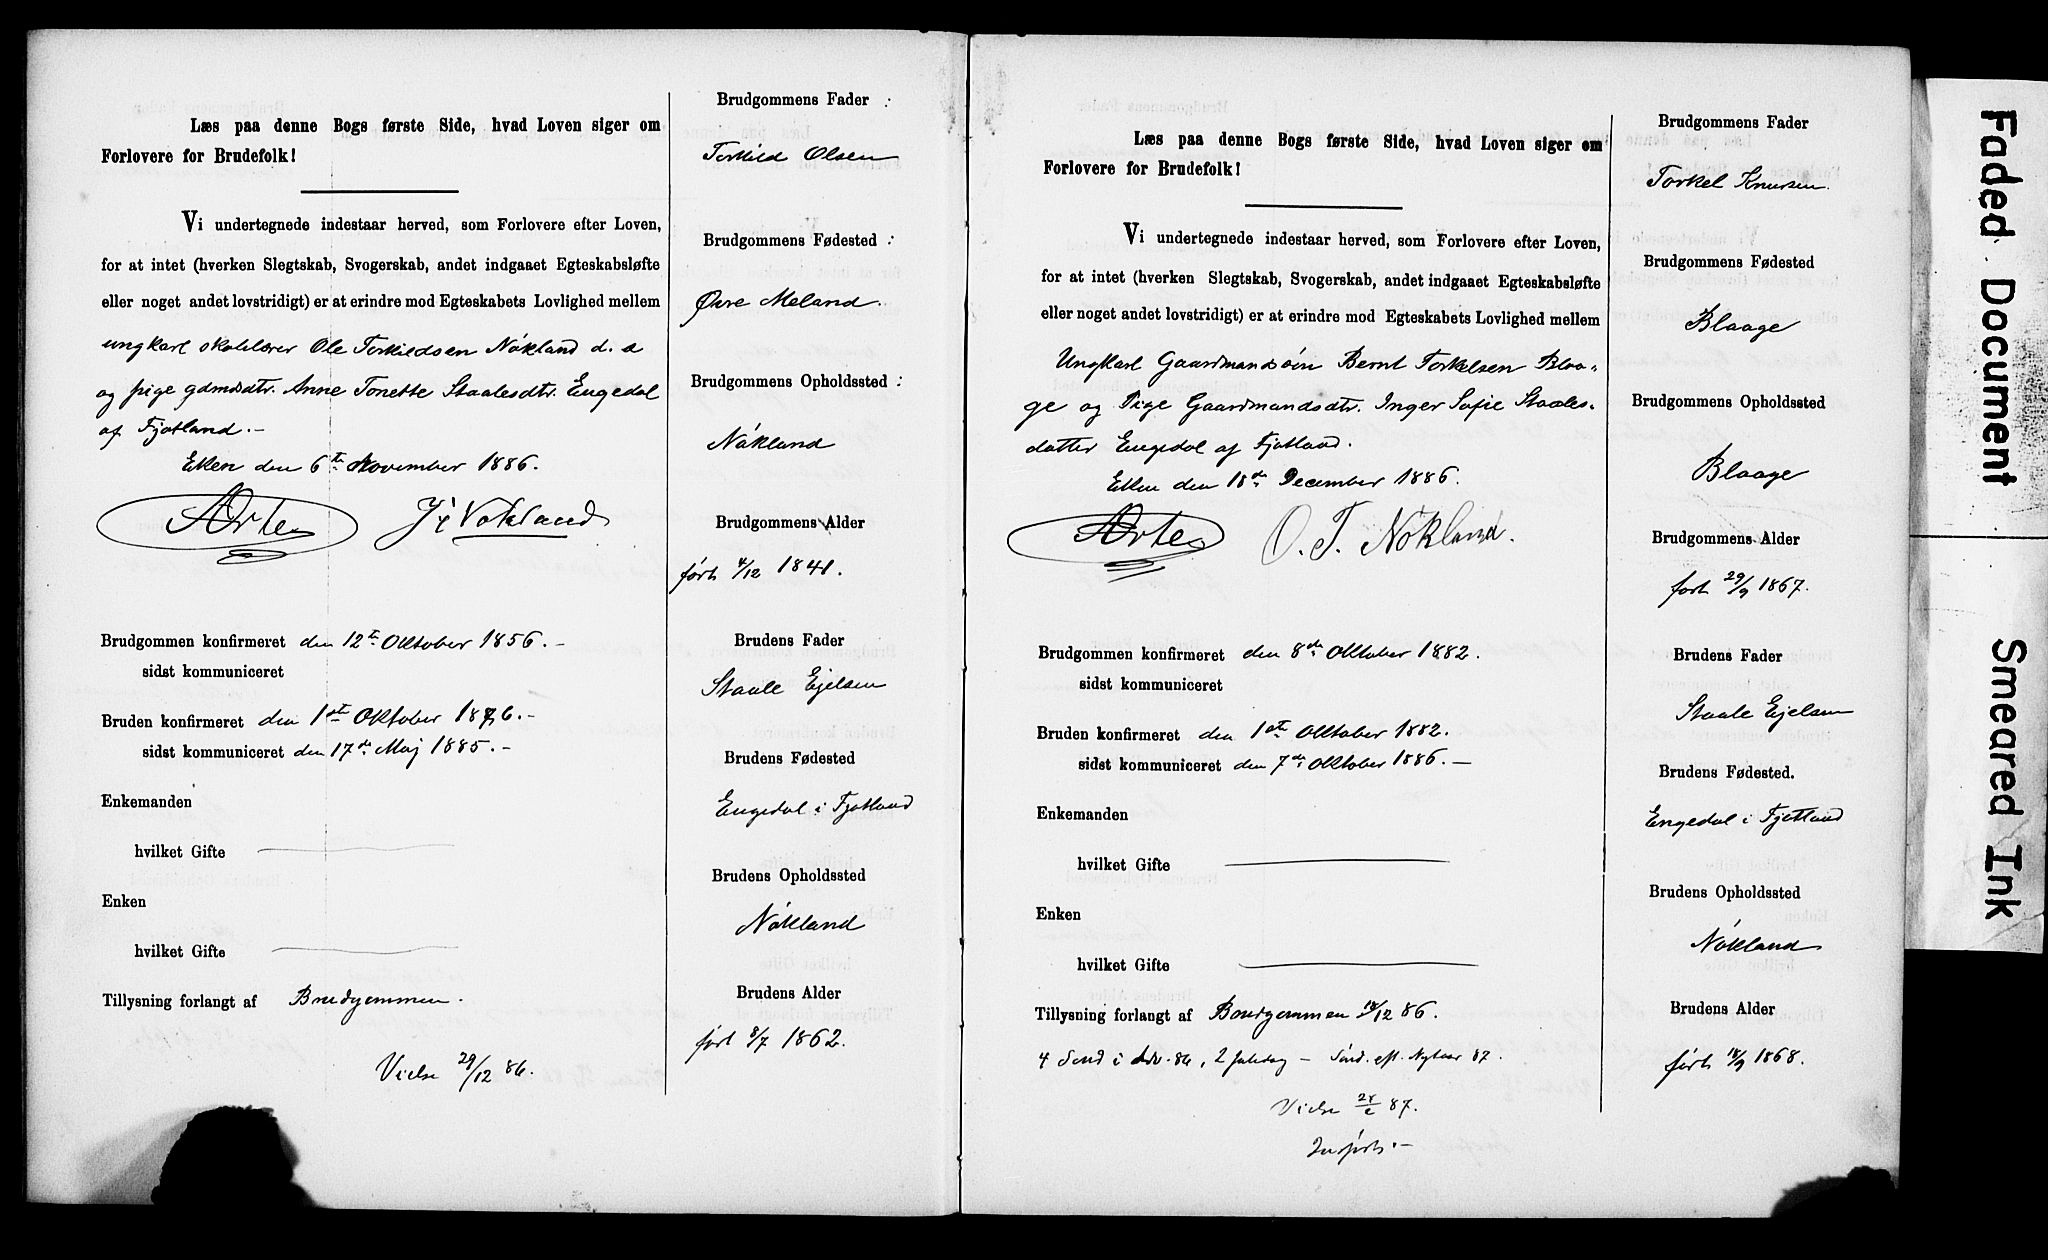 Læs paa denne Bogs første Side, hvad Loven siger om
Forlovere for Brudefolk!
Vi undertegnede indestaar herved, som Forlovere efter Loven,
for at intet (hverken Slegtskab, Svogerskab, andet indgaaet Egteskabsløfte
eller noget andet lovstridigt) er at erindre mod Egteskabets Lovlighed mellem
ungkarl skolelærer Ole Torkildsen Nøkland d. a
og pige gdmdtr. Anne Tonette Staalesdtr. Engedal
af Fjotland.-
Eken den 6te November 1886.
Brudgommen konfirmeret den 12te Oktober 1856.-
sidst kommuniceret
Bruden konfirmeret den 1ste Oktober 1876.-
sidst kommuniceret den 17de Maj 1885.-
Enkemanden
hvilket Gifte
Enken
hvilket Gifte
Tillysning forlangt af Brudgommen.
Vielse 29/12 86.
Brudgommens Fader :
Torkild Olsen
Brudgommens Fødested :
Øvre Meland.
Brudgommens Opholdssted :
Nøkland
Brudgommens Alder
født 4/12 1841.
Brudens Fader
Staale Ejelsen
Brudens Fødested
Engedal i Fjotland
Brudens Opholdssted
Nøkland
Brudens Alder
født 8/7 1862.
Læs paa denne Bogs første Side, hvad Loven siger om
Forlovere for Brudefolk!
Vi undertegnede indestaar herved, som Forlovere efter Loven,
for at intet (hverken Slegtskab, Svogerskab, andet indgaaet Egteskabsløfte
eller noget andet lovstridigt) er at erindre mod Egteskabets Lovlighed mellem
Ungkarl Gaardmandssøn Bernt Torkelsen Blaa-
ge og Pige Gaardmandsdtr. Inger Sofie Staales-
datter Engedal af Fjotland.
Eken den 18de December 1886.
O. T. Nøkland.
Brudgommen konfirmeret den 8de Oktober 1882.
sidst kommuniceret
Bruden konfirmeret den 1ste Oktober 1882.
sidst kommuniceret den 7de Oktober 1886.-
Enkemanden
hvilket Gifte
Enken
hvilket Gifte
Tillysning forlangt af Brudgommen 18/12 86.
4 Sønd i Adv. 86, 2 juledag - Sønd. eft. Nytaar 87.
Vielse 87.
Indført.-
Brudgommens Fader
Torkel Knutsen.
Brudgommens Fødested
Blaage
Brudgommens Opholdssted
Blaage
Brudgommens Alder
født 29/9 1867.
Brudens Fader
Staale Ejelsen
Brudens Fødested.
Engedal i Fjotland
Brudens Opholdssted
Nøkland
Brudens Alder
født 18/9 1868.
Faded Document
Smeared Ink